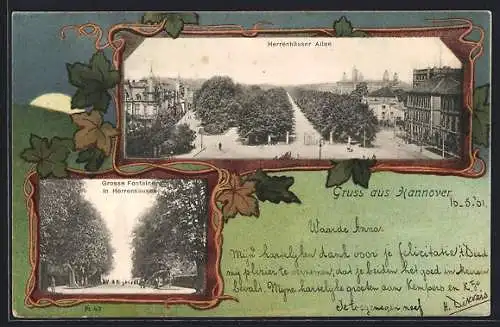 Herrenhäuser Allee
Grosse Fontaine
in Herrenhausen
Gruss aus Hannover
10.5.'01.
Waarde Anna.
Mijn hartelijken dank voor je felicitatie! 't Deed
mij plezier te vernemen, dat je beiden het goed in
bevalt. Mijne hartelijke groeten aan Kempers en
je toegenegen neef
H.